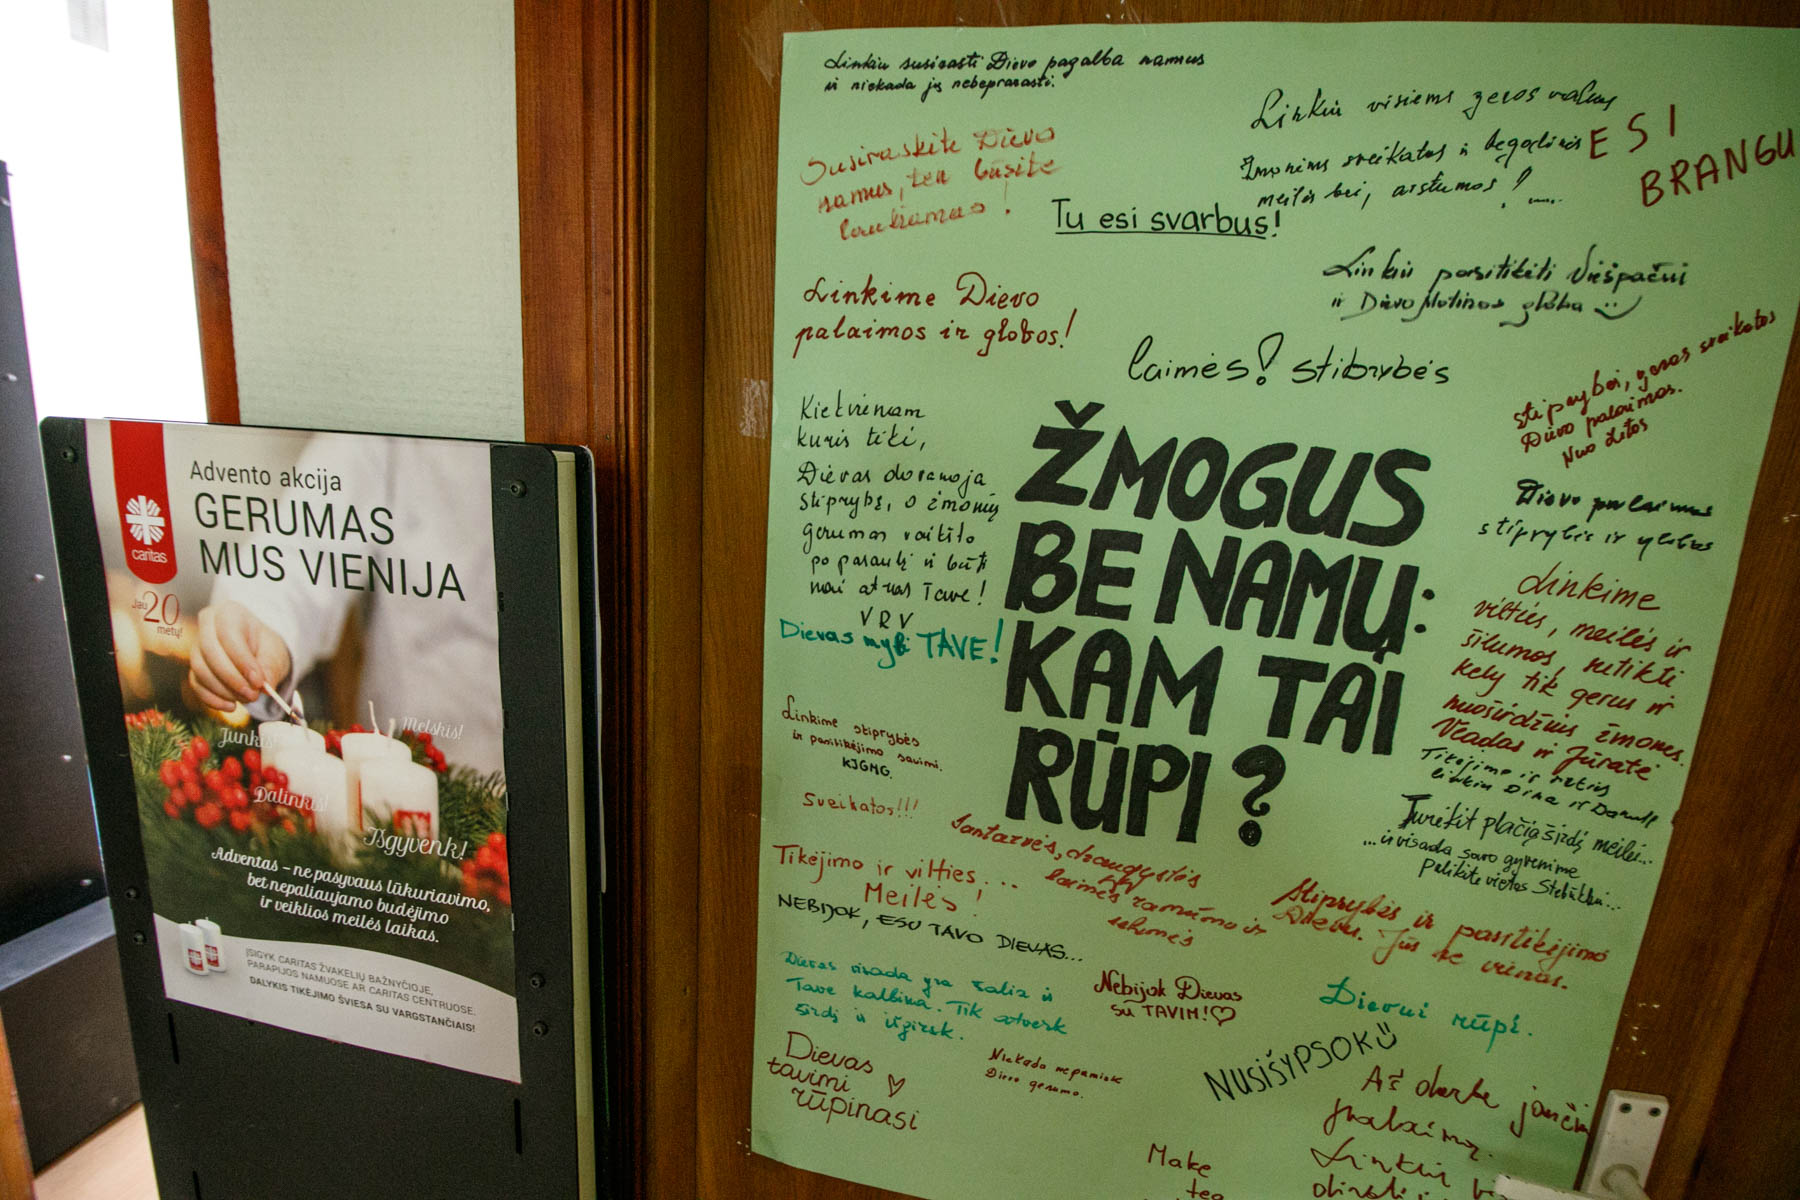 Advento akcija
GERUMAS
MUS VIENIJA
caritas
Jau 20
metų!
Junkis!
Melskis!
Dalinkis!
Išgyvenk!
Adventas – ne pasyvaus lūkuriavimo,
bet nepaliaujamo budėjimo
ir veiklios meilės laikas.
ĮSIGYK CARITAS ŽVAKELIŲ BAŽNYČIOJE,
PARAPIJOS NAMUOSE AR CARITAS CENTRUOSE.
DALYKIS TIKĖJIMO ŠVIESA SU VARGSTANČIAIS!
Linkiu susirasti Dievo pagalba namus
ir niekada jų nebeprarasti.
Susiraskite Dievo
namus, ten būsite
laukiamas!
Linkiu visiems geros valios
žmonėms sveikatos ir begalinės
meilės bei, arstumos!....
ESI
BRANGU
Tu esi svarbus!
Linkime Dievo
palaimos ir globos!
Linkiu pasitikėti Viešpačiui
ir Dievo Motinos globa
laimės! stibrybės
stiprybei, geros sveikatos
Dievo palaimos.
Nuo Litos
Kiekvienam
kuris tiki,
Dievas dovanoja
stiprybę, o žmonių
gerumas vaikšto
po pasaulį ir būti
nai atras Tave!
VRV
Dievas myli TAVE!
ŽMOGUS
BE NAMŲ:
KAM TAI
RŪPI?
Dievo palaimos
stiprybės ir globos
Linkime
vilties, meilės ir
šilumos, sutikti
kely tik gerus ir
nuoširdžius žmones.
Vladas ir Jūratė
Tikėjimo ir vilties
linkiu Dima ir
Linkime stiprybės
ir pasitikėjimo savimi.
KJGMG.
Sveikatos!!!
Turėkit plačią širdį meilei...
...ir visada savo gyvenime
palikite vietos Stebūklui...
Santarvės, draugystės
laimės ramūmo ir
sėkmės
Tikėjimo ir vilties...
Meilės!
NEBIJOK, ESU TAVO DIEVAS...
Stiprybės ir pasitikėjimo
Dievu. Jūs ne vienas.
Dievas visada yra šalia ir
Tave kalbina. Tik atverk
širdį ir išgirsk.
Nebijok Dievas
SU TAVIM!
Dievui rūpi.
Dievas
tavimi
rūpinasi
Niekada nepamiršk
Dievo gerumo.
NUSIŠYPSOK
Aš
Linkiu